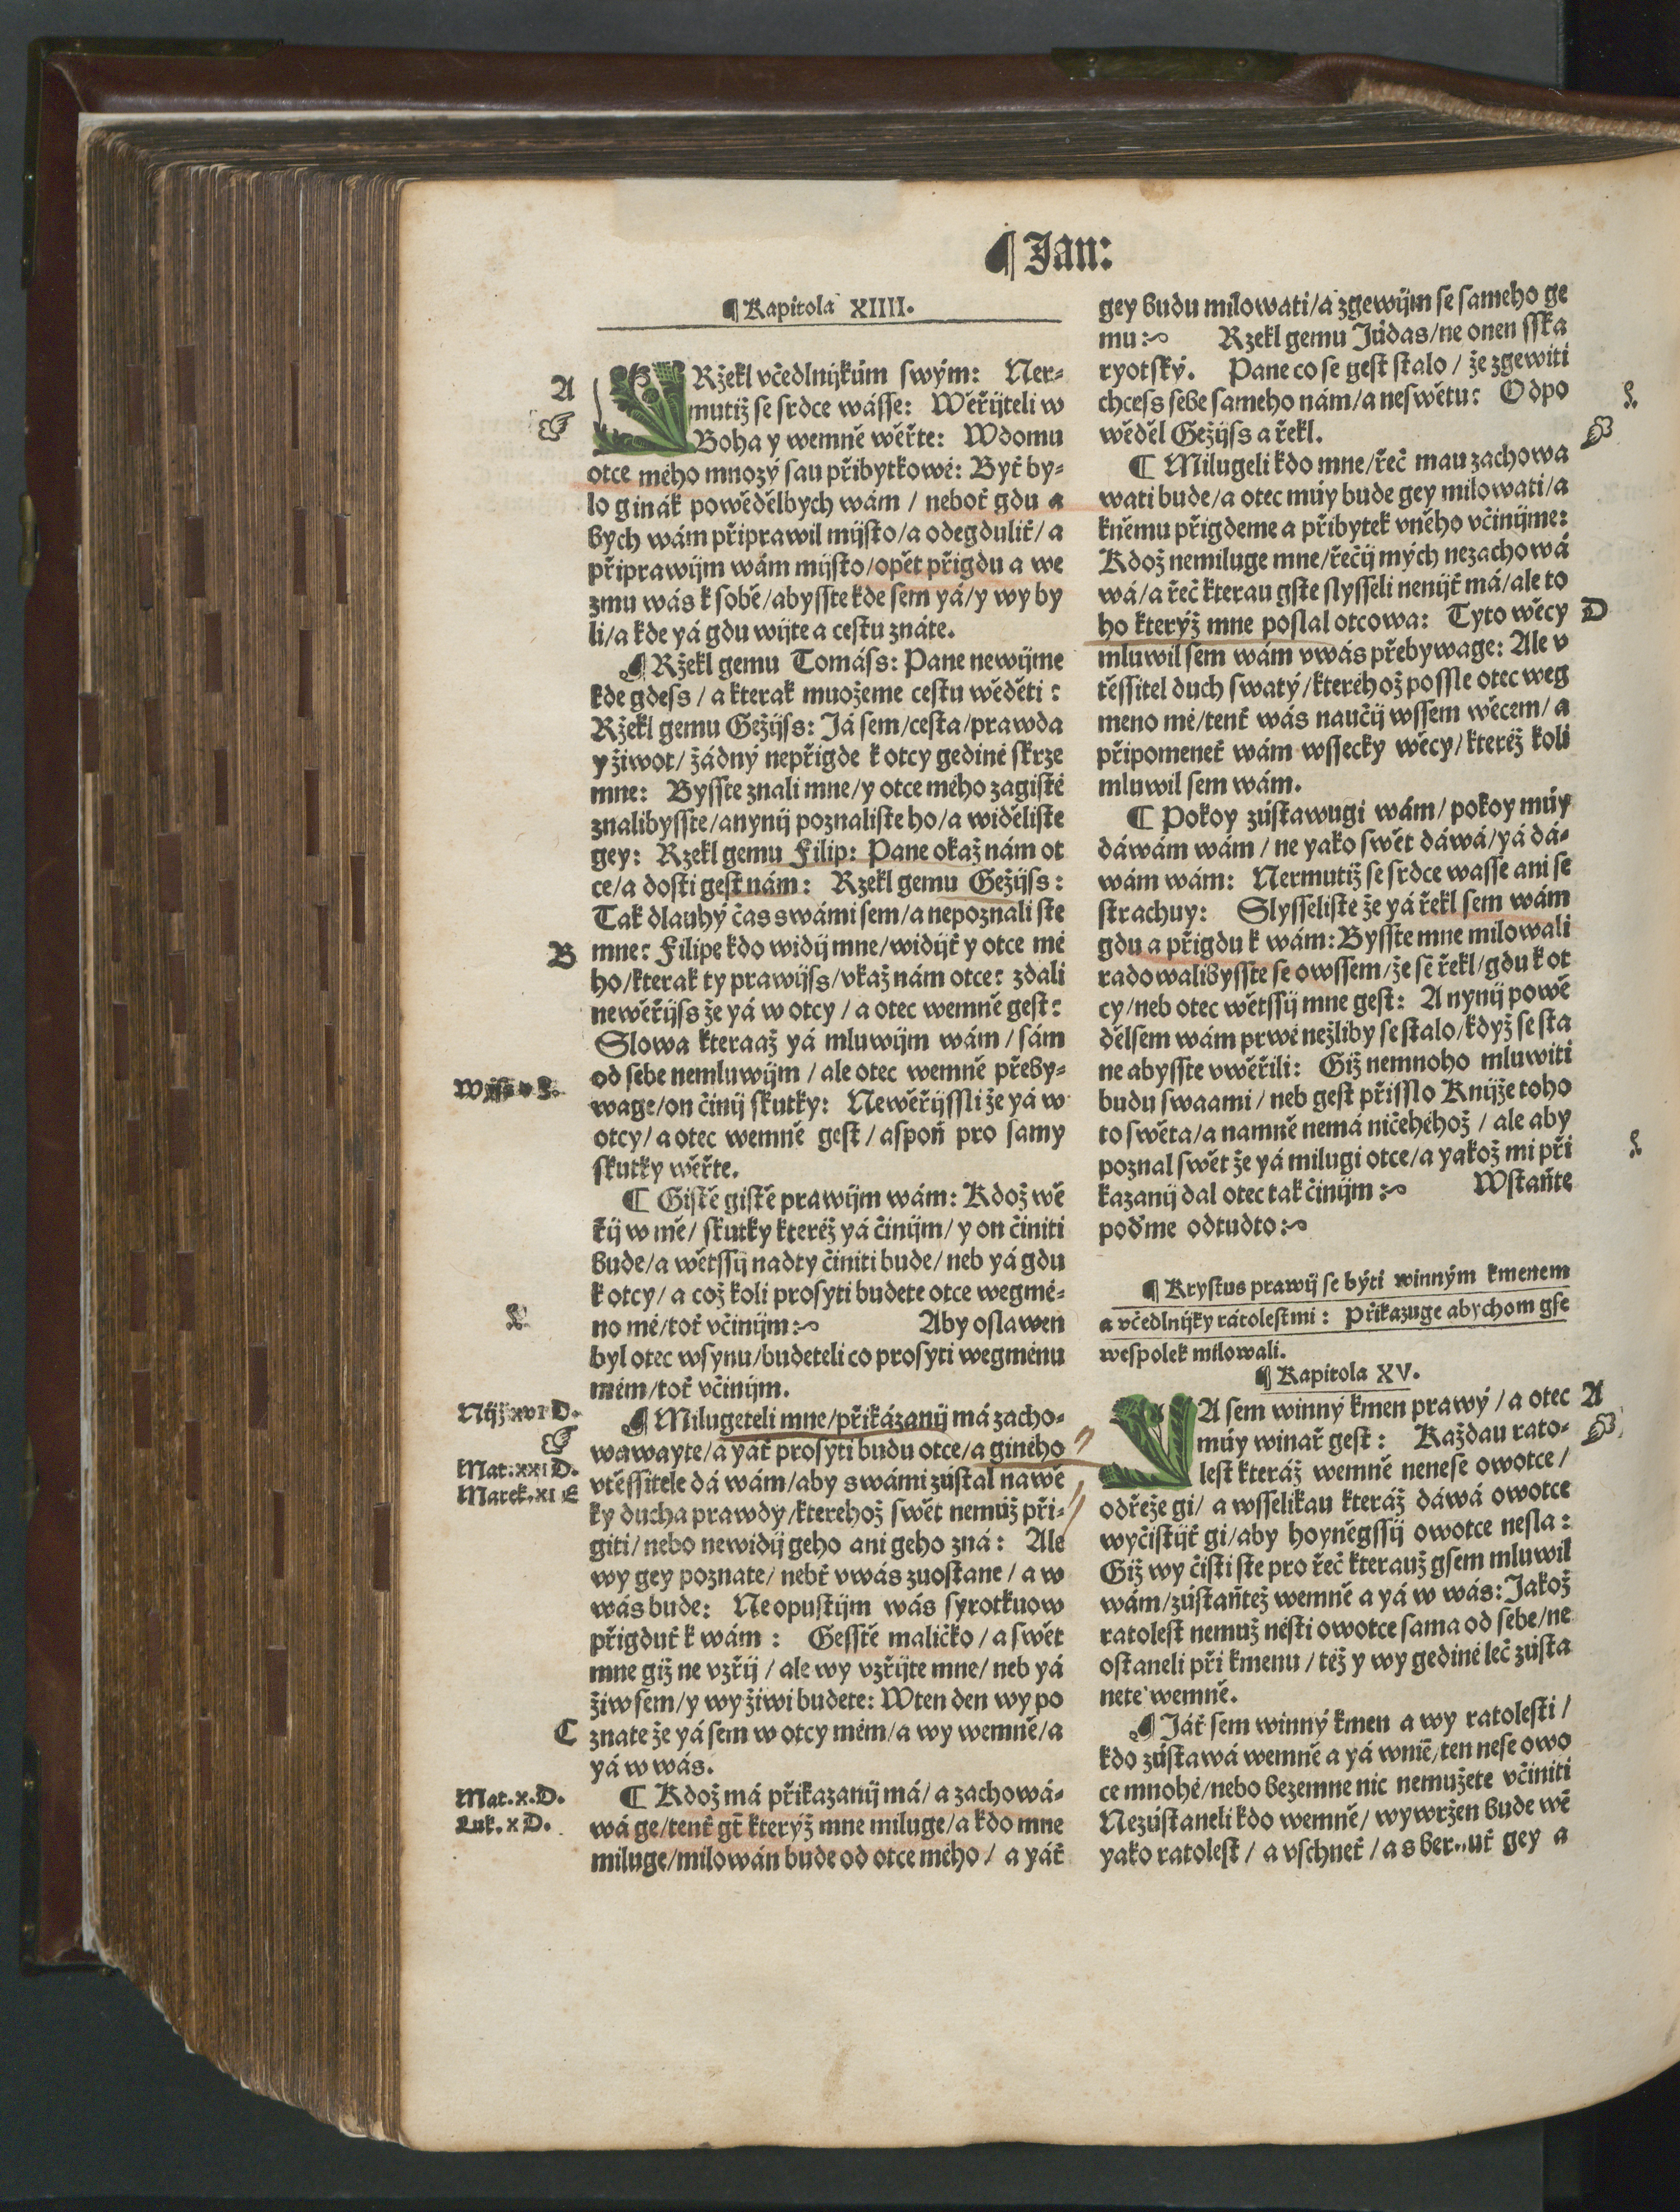 ¶ Jan:
¶ Kapitola XIIII.
A
Ržekl včedlnijkům swým: Ner-
mutiž se srdce wásse: Wěřijteli w
Boha y wemně wěřte: Wdomu
otce mého mnozý sau přibytkowé: Byť by-
lo ginák powědělbych wám / neboť gdu a
bych wám připrawil mijsto/a odegduliť/ a
připrawijm wám mijsto/opět přigdu a we
zmu wás k sobě/abysste kde sem yá/y wy by
li/a kde yá gdu wijte a cestu znáte.
¶ Ržekl gemu Tomáss: Pane newijme
kde gdess / a kterak muožeme cestu wěděti :
Ržekl gemu Gežijss: Já sem/cesta/prawda
y žiwot/ žádný nepřigde k otcy gediné skrze
mne: Bysste znali mne/y otce mého zagisté
znalibysste/anynij poznaliste ho/a widěliste
gey: Rzekl gemu Filip: Pane okaž nám ot
ce/a dosti gest nám: Rzekl gemu Gežijss:
Tak dlauhý čas swámi sem/a nepoznali ste
B
mne: Filipe kdo widij mne/widijť y otce mé
ho/kterak ty prawijss/vkaž nám otce: zdali
newěřijss že yá w otcy / a otec wemně gest:
Slowa kteraaž yá mluwijm wám / sám
od sebe nemluwijm / ale otec wemně přeby-
wage/on činij skutky: Newěřijssli že yá w
otcy/ a otec wemně gest / aspoň pro samy
skutky wěřte.
¶ Gistě gistě prawijm wám: Kdož wě
řij w mě/ skutky kteréž yá činijm/ y on činiti
bude/a wětssij nadty činiti bude/ neb yá gdu
k otcy/ a což koli prosyti budete otce wegmé-
no mé/toť včinijm: Aby oslawen
byl otec wsynu/budeteli co prosyti wegménu
mém/toť včinijm.
Nijž xvi D.
¶ Milugeteli mne/přikázanij má zacho-
wawayte/a yáť prosyti budu otce/a giného
Mat: xxi D.
Marek. XI E
vtěssitele dá wám/aby swámi zůstal na wě
ky ducha prawdy/kterehož swět nemůž při-
giti/ nebo newidij geho ani geho zná: Ale
wy gey poznate/ nebť vwás zuostane / a w
wás bude: Neopustijm wás syrotkuow
přigduť k wám : Gesstě maličko / a swět
mne giž ne vzřij / ale wy vzřijte mne/ neb yá
žiw sem/y wy žiwi budete: Wten den wy po
C
znate že yá sem w otcy mém/a wy wemně/a
yá w wás.
Mat. X. D.
Luk. X D.
¶ Kdož má přikazanij má/ a zachowá-
wá ge/tenť gt̄ kterýž mne miluge/a kdo mne
miluge/milowán bude od otce mého / a yáť
gey budu milowati/a zgewijm se sameho ge
mu: Rzekl gemu Júdas/ne onen sska
ryotský. Pane co se gest stalo / že zgewiti
chcess sebe sameho nám/a neswětu: Odpo
wěděl Gežijss a řekl.
¶ Milugeli kdo mne/řeč mau zachowa
wati bude/a otec múy bude gey milowati/a
kněmu přigdeme a přibytek vněho včinijme:
Kdož nemiluge mne/řečij mých nezachowá
wá/a řeč kterau gste slysseli nenijť má/ale to
ho kterýž mne poslal otcowa: Tyto wěcy
D
mluwil sem wám vwás přebywage: Ale v
těssitel duch swatý/kteréhož possle otec weg
meno mé/tenť wás naučij wssem wěcem/ a
připomeneť wám wssecky wěcy/kteréž koli
mluwil sem wám.
¶ Pokoy zústawugi wám/ pokoy múy
dáwám wám / ne yako swět dáwá/yá dá-
wám wám: Nermutiž se srdce wasse ani se
strachuy: Slysseliste že yá řekl sem wám
gdu a přigdu k wám: Bysste mne milowali
radowalibysste se owssem/že sē řekl/gdu k ot
cy/neb otec wětssij mne gest: A nynij powě
dělsem wám prwé nežliby se stalo/když se sta
ne abysste vwěřili: Giž nemnoho mluwiti
budu swaami / neb gest přisslo Knijže toho
to swěta/a namně nemá ničehéhož / ale aby
poznal swět že yá milugi otce/a yakož mi při
kazanij dal otec tak činijm: Wstaňte
poďme odtudto:
¶ Krystus prawij se býti winným kmenem
a včedlnijky rátolestmi : Přikazuge abychom gse
wespolek milowali.
¶ Kapitola XV.
A
A sem winný kmen prawý / a otec
múy winař gest : Každau rato-
lest kteráž wemně nenese owotce /
odřeže gi/ a wsselikau kteráž dáwá owotce
wyčistijť gi/aby hoyněgssij owotce nesla :
Giž wy čisti ste pro řeč kterauž gsem mluwil
wám/zústaňtež wemně a yá w wás: Jakož
ratolest nemuž nésti owotce sama od sebe/ne
ostaneli při kmenu / též y wy gediné leč zústa
nete wemně.
¶ Jáť sem winný kmen a wy ratolesti /
kdo zústawá wemně a yá wnie̅/ten nese owo
ce mnohé/nebo bezemne nic nemužete včiniti
Nezústaneli kdo wemně/ wywržen bude wē
yako ratolest / a vschneť / a sber..uť gey a